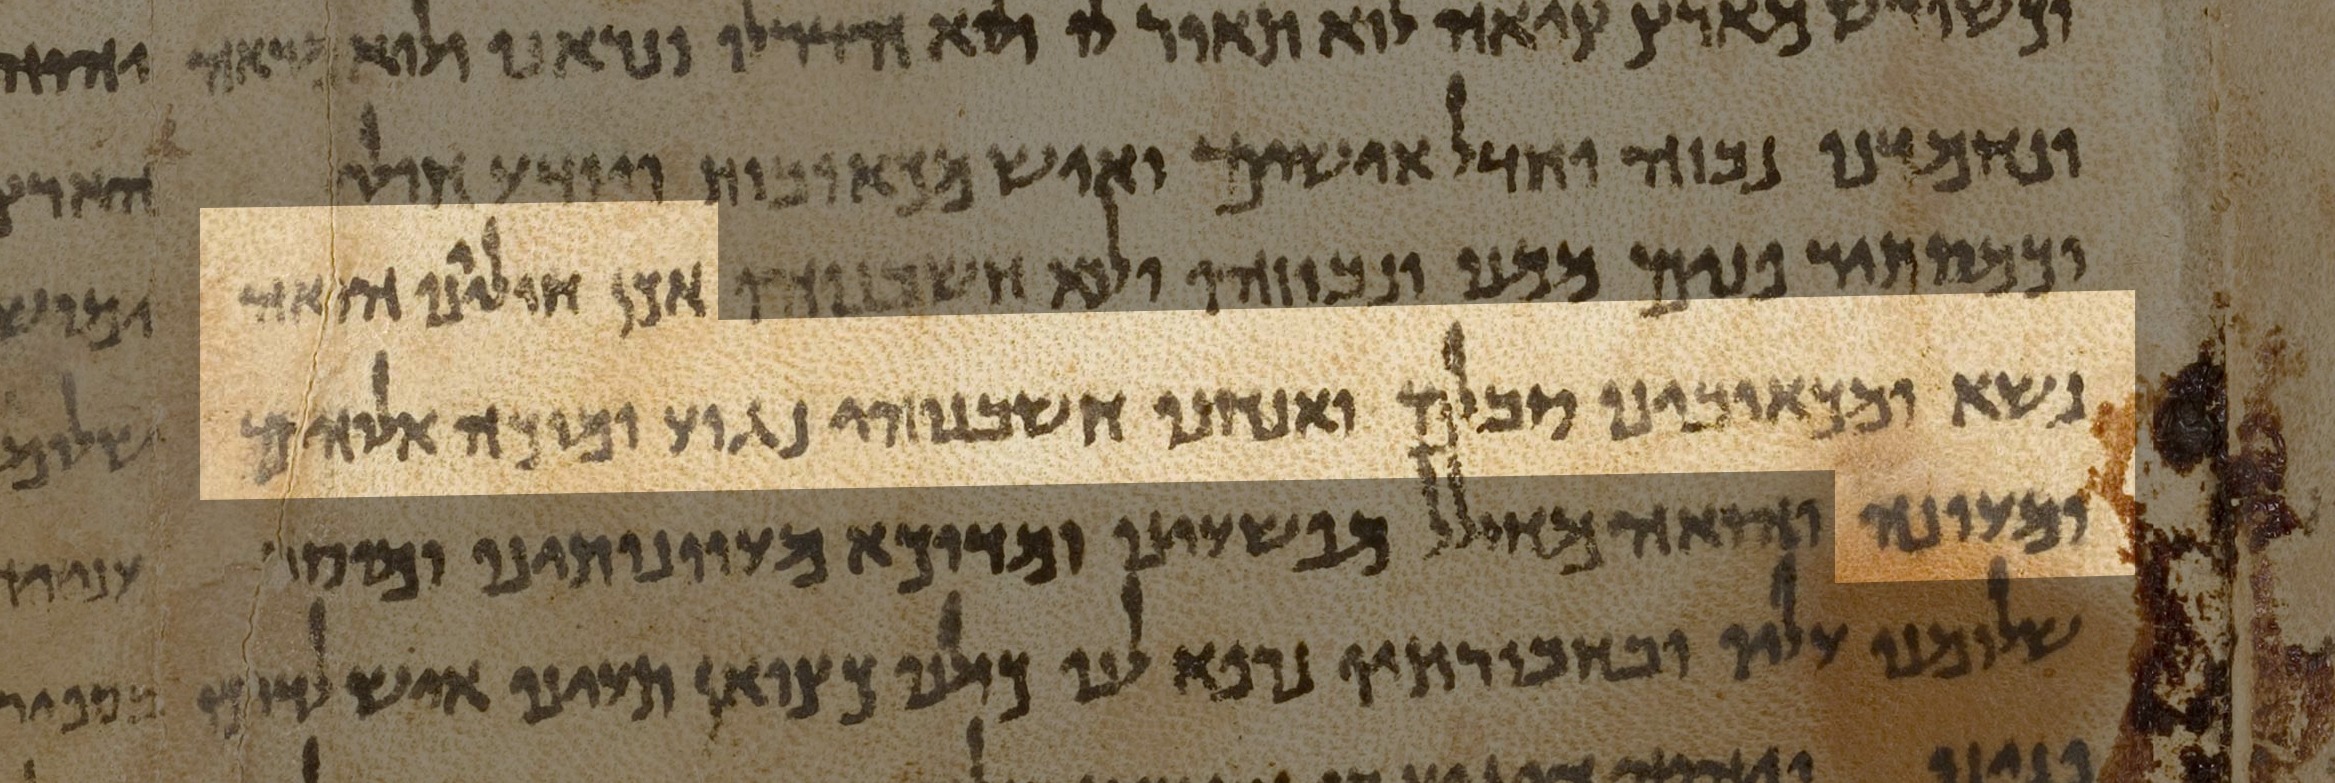 וכשורש מארץ ציאה לוא תאור לו ולוא הדר לו ונראנו ולוא מראה
ונחמדנו נבזה וחדל אישים ואיש מכאובות ויודע חולי
וכמסתיר פנים ממנו ונבוזהו ולוא חשבנוהו אכן חוליינו הואה
נשא ומכאובינו סבלם ואנחנו חשבנוהו נגוע ומוכה אלוהים
ומעונה והואה מחולל מפשעינו ומדוכא מעוונותינו ומוסר
שלומנו עליו ובחבורתיו נרפא לנו כולנו כצואן תעינו איש לדרכו